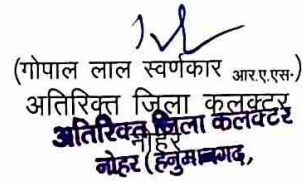 (गोपाल लाल स्वर्णकार आर.ए.एस.)
अतिरिक्त जिला कलक्टर
नोहर
अतिरिक्त जिला कलक्टर
नोहर (हनुमानगढ़)